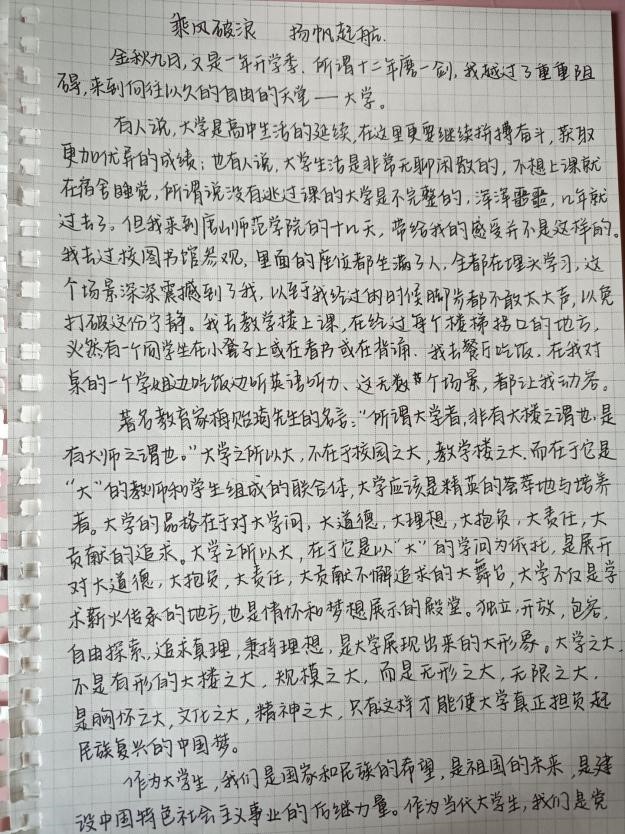 乘风破浪 扬帆起航.
金秋九月,又是一年开学季.所谓十二年磨一剑,我越过了重重阻
碍,来到向往以久的自由的天堂——大学。
有人说,大学是高中生活的延续,在这里更要继续拼搏奋斗,获取
更加优异的成绩;也有人说,大学生活是非常无聊闲散的,不想上课就
在宿舍睡觉,所谓说没有逃过课的大学是不完整的,浑浑噩噩,几年就
过去了。但我来到唐山师范学院的十几天,带给我的感受并不是这样的。
我去过校图书馆参观,里面的座位都坐满了人,全都在埋头学习,这
个场景深深震撼到了我,以至于我经过的时候脚步都不敢太大声,以免
打破这份宁静。我去教学楼上课,在经过每个楼梯拐口的地方,
必然有一个同学坐在小凳子上或在看书或在背诵.我去餐厅吃饭.在我对
桌的一个学姐边吃饭边听英语听力、这无数个场景,都让我动容。
著名教育家梅贻琦先生的名言:“所谓大学者,非有大楼之谓也,是
有大师之谓也。”大学之所以大,不在于校园之大,教学楼之大.而在于它是
“大”的教师和学生组成的联合体,大学应该是精英的荟萃地与培养
者。大学的品格在于对大学问,大道德,大理想,大抱负,大责任,大
贡献的追求。大学之所以大,在于它是以“大”的学问为依托,是展开
对大道德,大抱负,大责任,大贡献不懈追求的大舞台,大学不仅是学
术薪火传承的地方,也是情怀和梦想展示的殿堂。独立,开放,包容,
自由探索,追求真理,秉持理想,是大学展现出来的大形象。大学之大,
不是有形的大楼之大,规模之大,而是无形之大,无限之大,
是胸怀之大,文化之大,精神之大,只有这样才能使大学真正担负起
民族复兴的中国梦。
作为大学生,我们是国家和民族的希望,是祖国的未来,是建
设中国特色社会主义事业的后继力量。作为当代大学生,我们是党